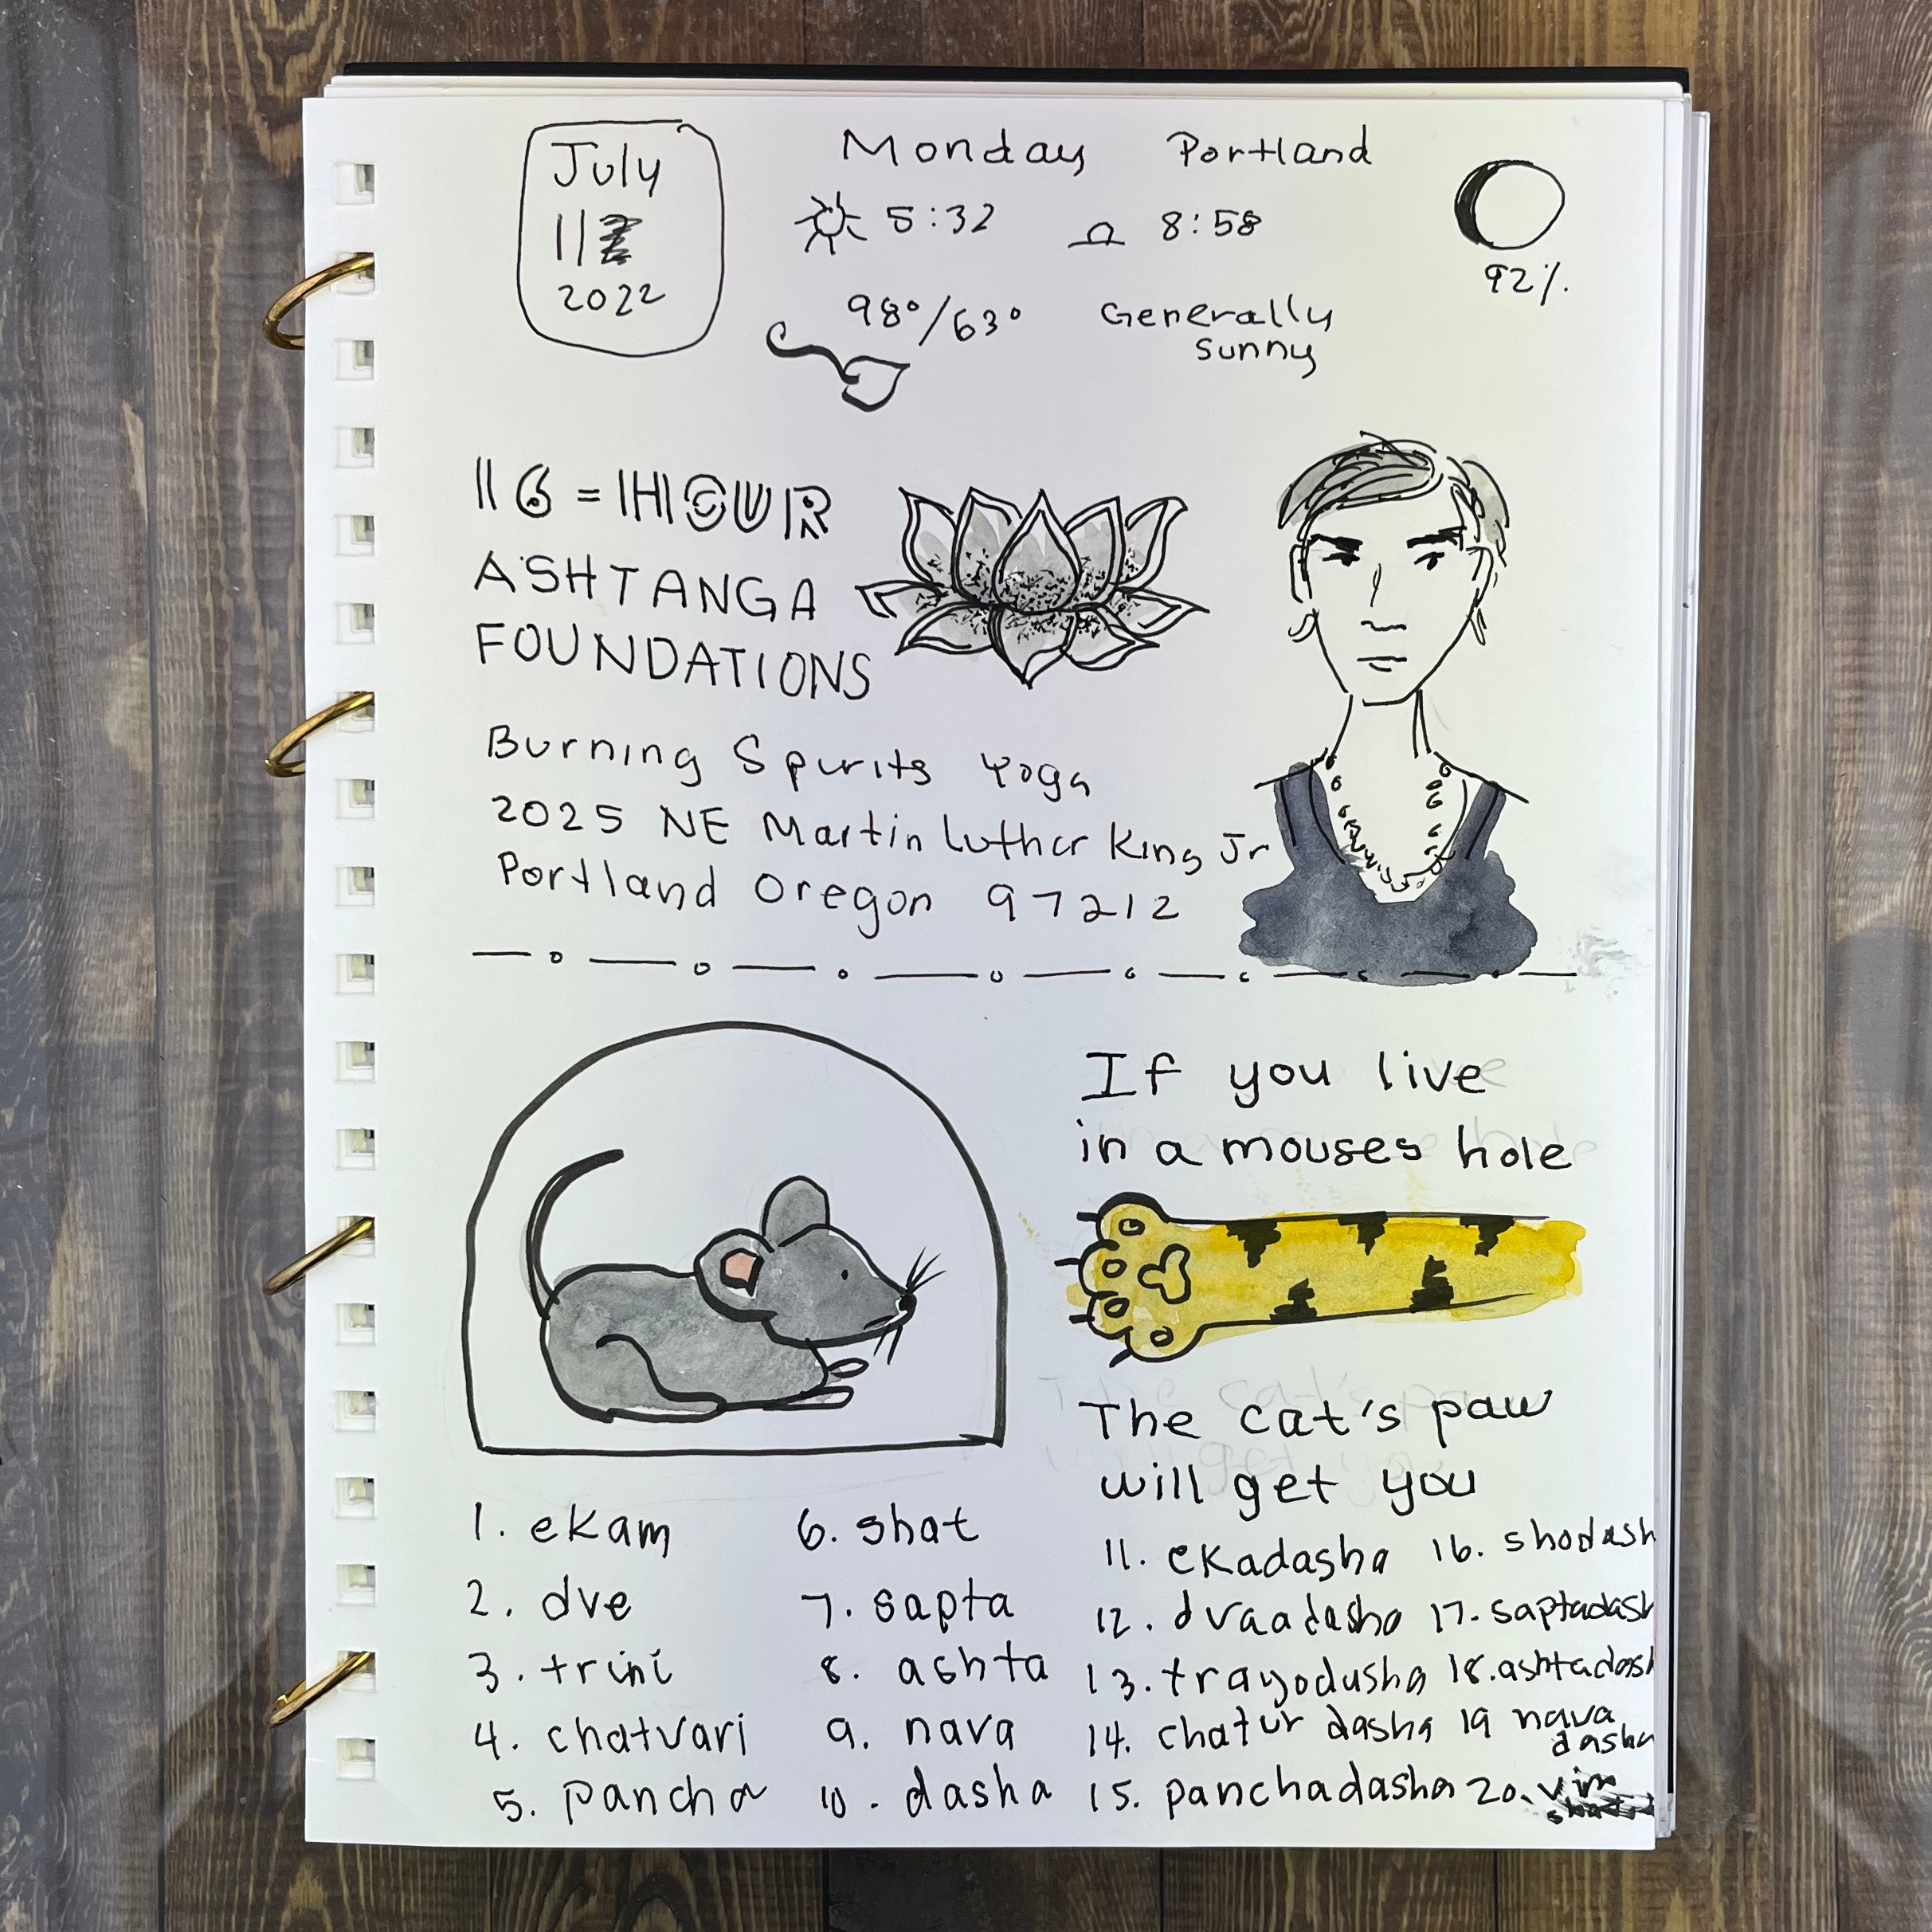 July
11
2022
Monday Portland
5:32 8:58
92%.
98°/63° Generally
sunny
16-HOUR
ASHTANGA
FOUNDATIONS
Burning Spirits Yoga
2025 NE Martin Luther King Jr
Portland Oregon 97212
If you live
in a mouses hole
The cat's paw
will get you
1. ekam
2. dve
3. trini
4. chatvari
5. pancha
6. shat
7. sapta
8. ashta
9. nava
10. dasha
11. ekadasha
12. dvaadasha
13. trayodusha
14. chatur dasha
15. panchadasha
16. shodash
17. saptadash
18. ashtadash
19 nava
dasha
20. vim